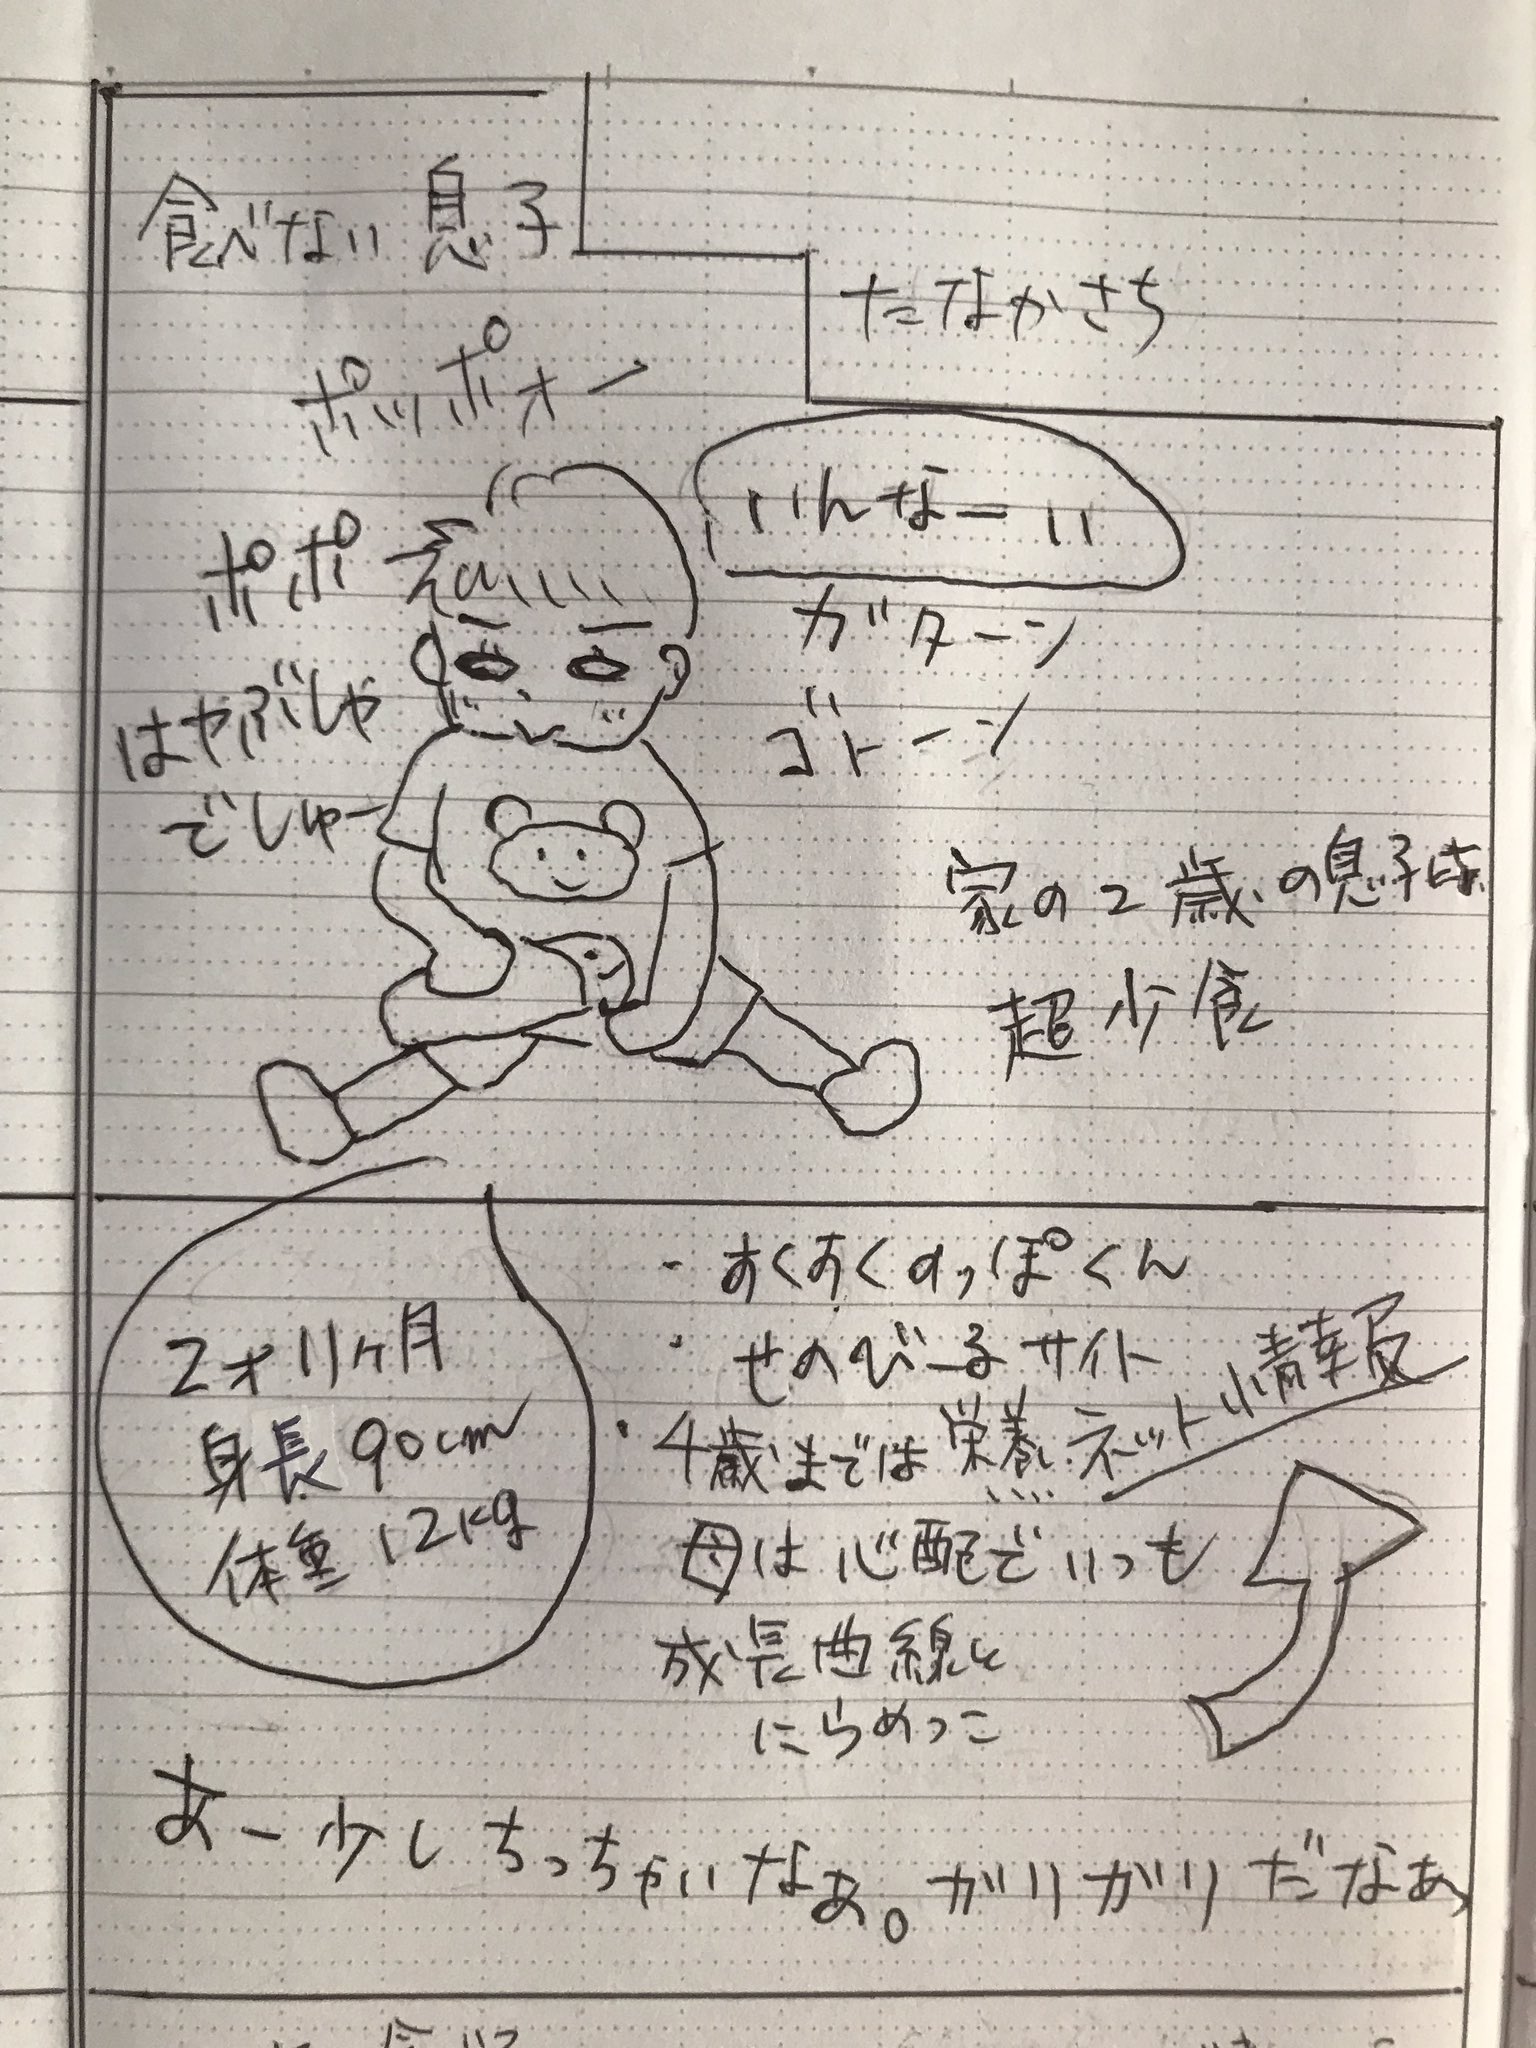 食べない息子
たなかさち
ポッポォー
いんなーい
ポポ
ガターン
ゴトーン
はやぶしゃ
でしゅー
家の2歳の息子は
超少食
2才11ヶ月
身長90cm
体重12kg
・すくすくのっぽくん
・せのびーるサイト
・4歳までは栄養…
ネット情報
母は心配でいつも
成長曲線と
にらめっこ
あー少しちっちゃいなぁ。ガリガリだなぁ